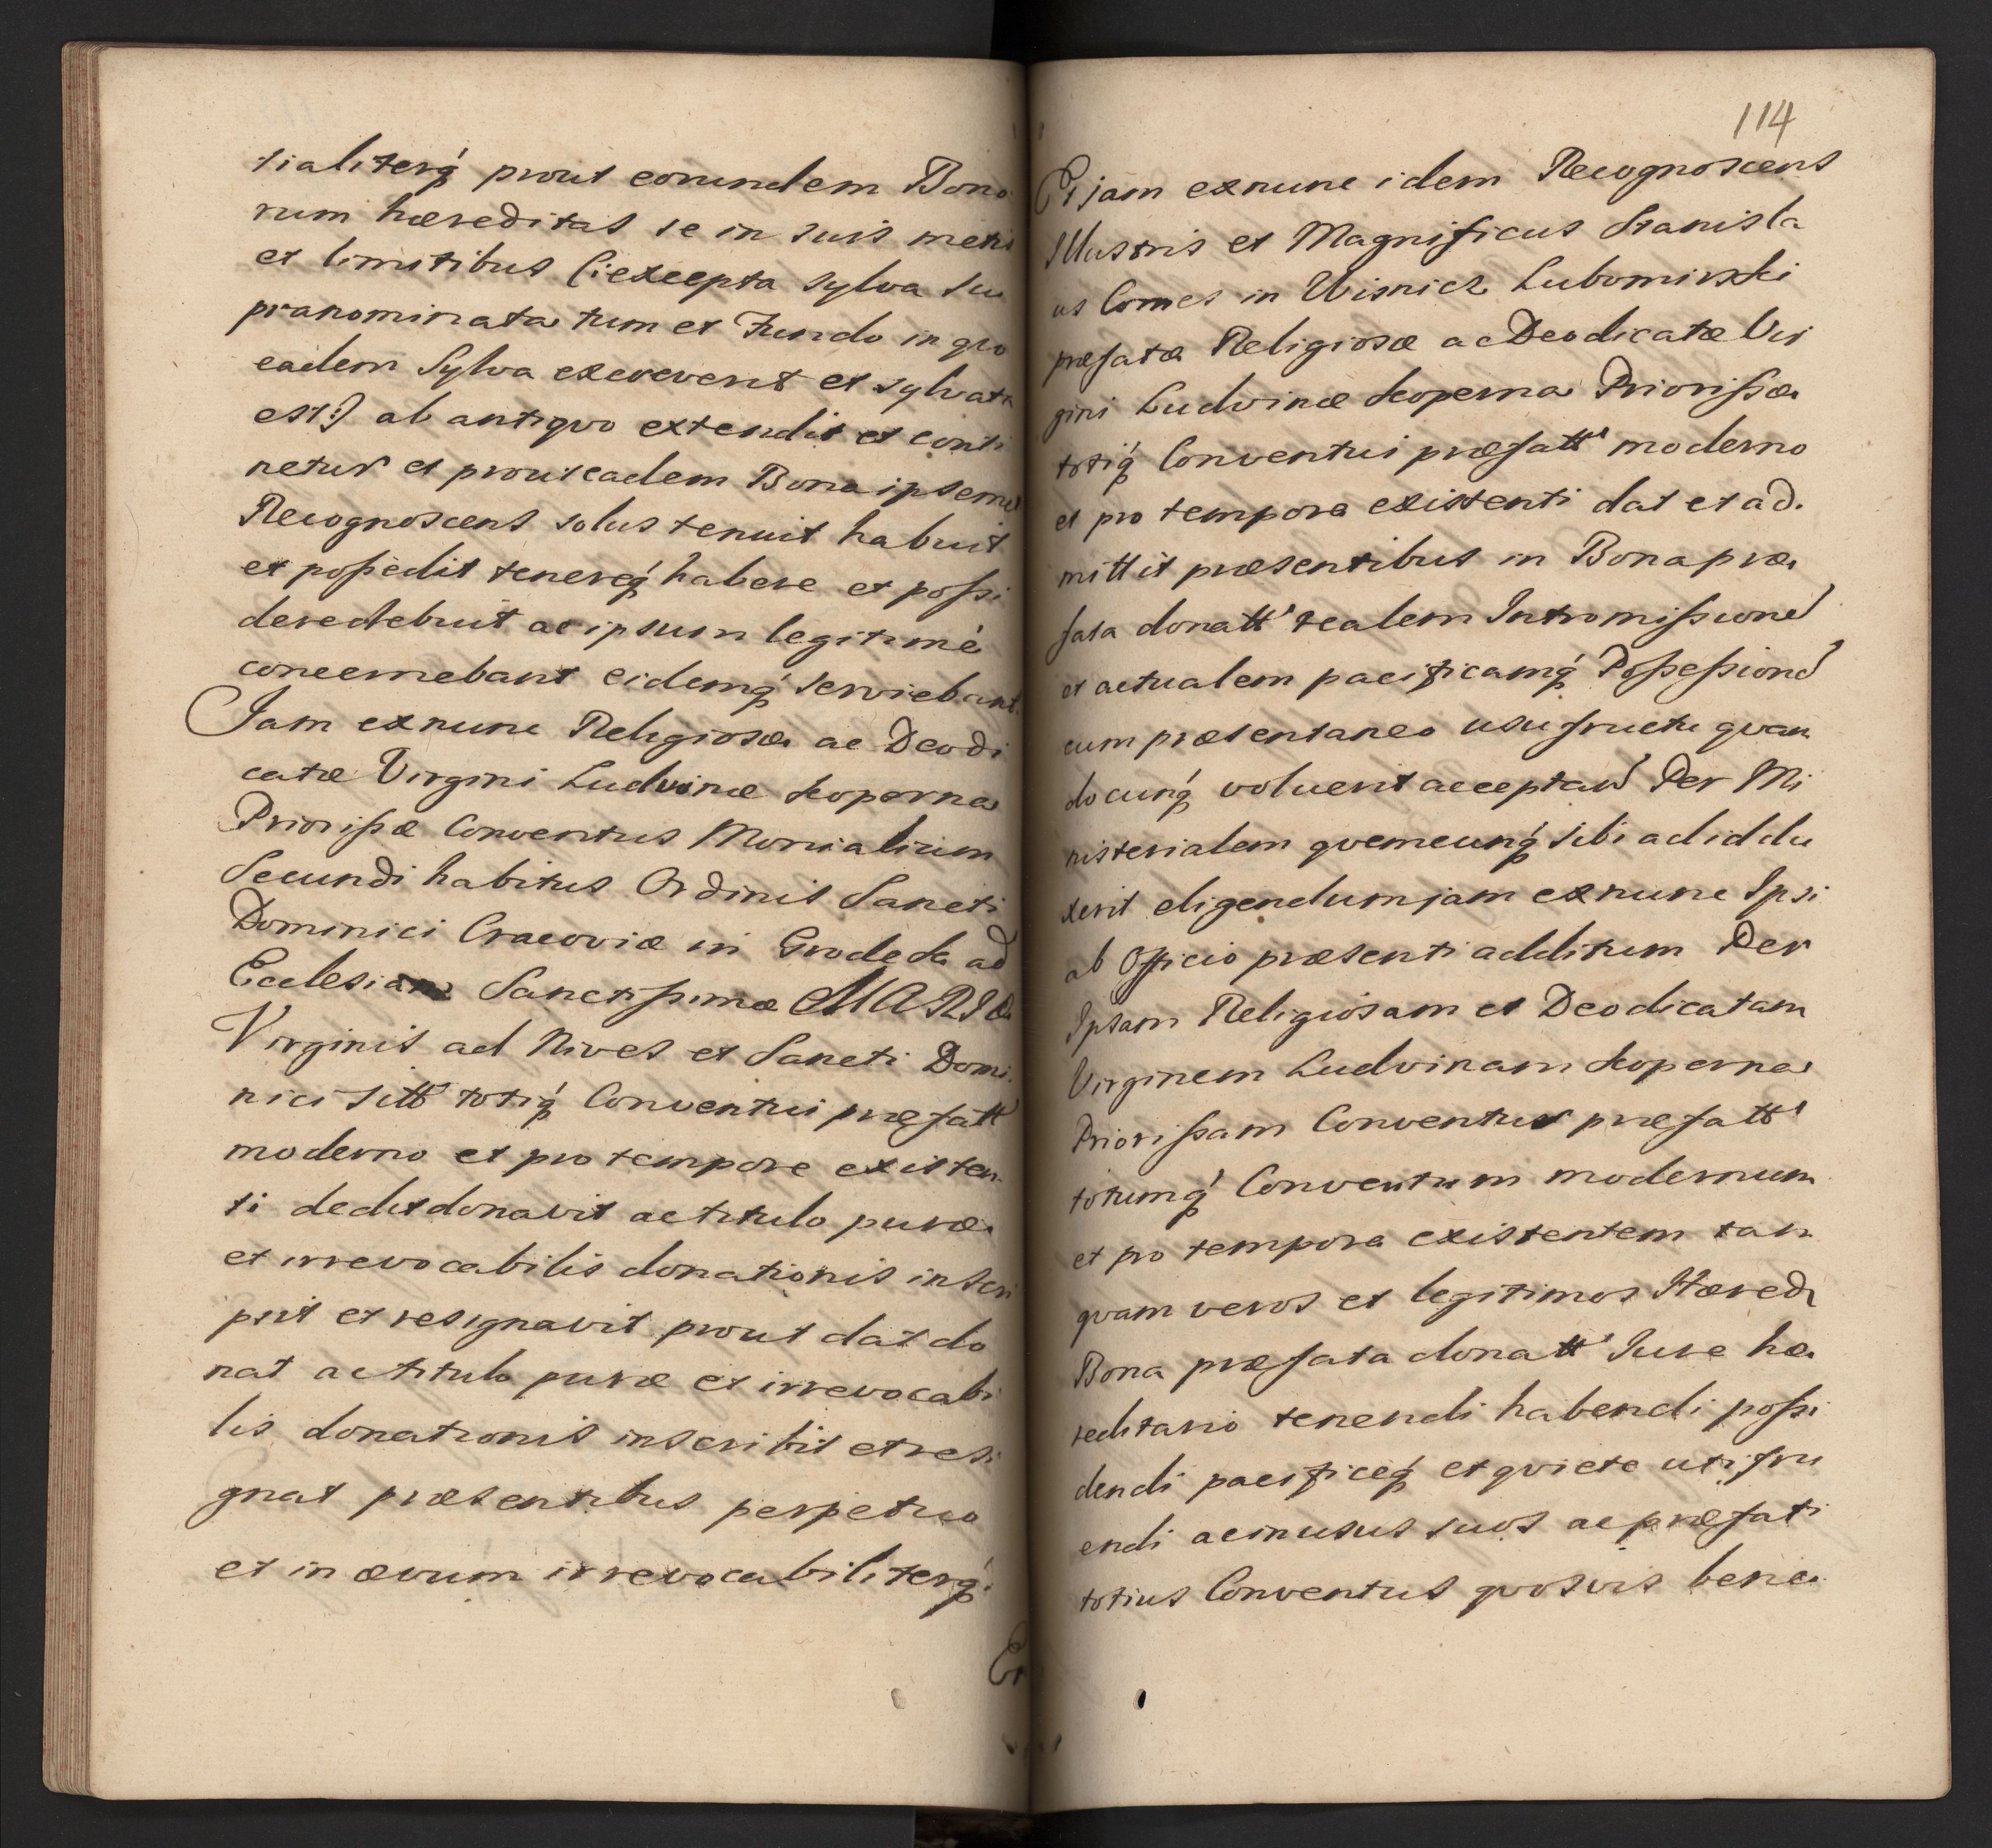 tialiterq́ prout eorundem Bono
rum hæreditas se in suis metis
et limitibus (:excepta sylva su
pranominata tum et Fundo in qvo
eadem Sylva excreverit et sylvata
est:) ab antiqvo extendit et conti
netur et prout eadem Bona ipsemet
Recognoscens solus tenuit habuit
et possedit tenereq́ habere et possi
dere debuit ac ipsum legitimè
concernebant eidemq́ serviebant.
Jam exnunc Religiosæ ac Deodi
catæ Virgini Ludvinæ Koperna
Priorissæ Conventus Monialium
Secundi habitus Ordinis Sancti
Dominici Cracoviæ in Grodek ad
Ecclesiam Sanctissimæ MARIÆ
Virginis ad Nives et Sancti Domi
nici sitt totiq́ Conventui præfatt
moderno et pro tempore existen
ti dedit donavit ac titulo puræ
et irrevocabilis donationis inscri
psit et resignavit prout dat do
nat ac titulo puræ et irrevocabi
lis donationis inscribit et resi
gnat præsentibus perpetuo
et in ævum irrevocabiliterq́.
Et
114
Et jam exnunc idem Recognoscens
Illustris et Magnificus Stanisla
us Comes in Wisnicz Lubomirski
præfatæ Religiosæ ac Deodicatæ Vir
gini Ludvinæ Koperna Priorissæ
totiq́ Conventui præfatt moderno
et pro tempore existenti dat et ad
mittit præsentibus in Bona præ
fata donatt realem Intromissione
et actualem pacificamq́ Possessione
cum præsentaneo usufructu qvan
docunq́ voluerit acceptan Per Mi
nisterialem qvemcunq́ sibi ad id du
xerit eligendum jam exnunc Ipsi
ab Officio præsenti additum Per
Ipsam Religiosam et Deodicatam
Virginem Ludvinam Koperna
Priorissam Conventus præfatt
totumq́ Conventum modernum
et pro tempore existentem tan
qvam veros et legitimos Hæred
Bona præfata donatt Jure hæ
reditario tenendi habendi possi
dendi pacificeq́ et qviete utifru
endi ac in usus suos ac præfati
totius Conventus qvosvis bene